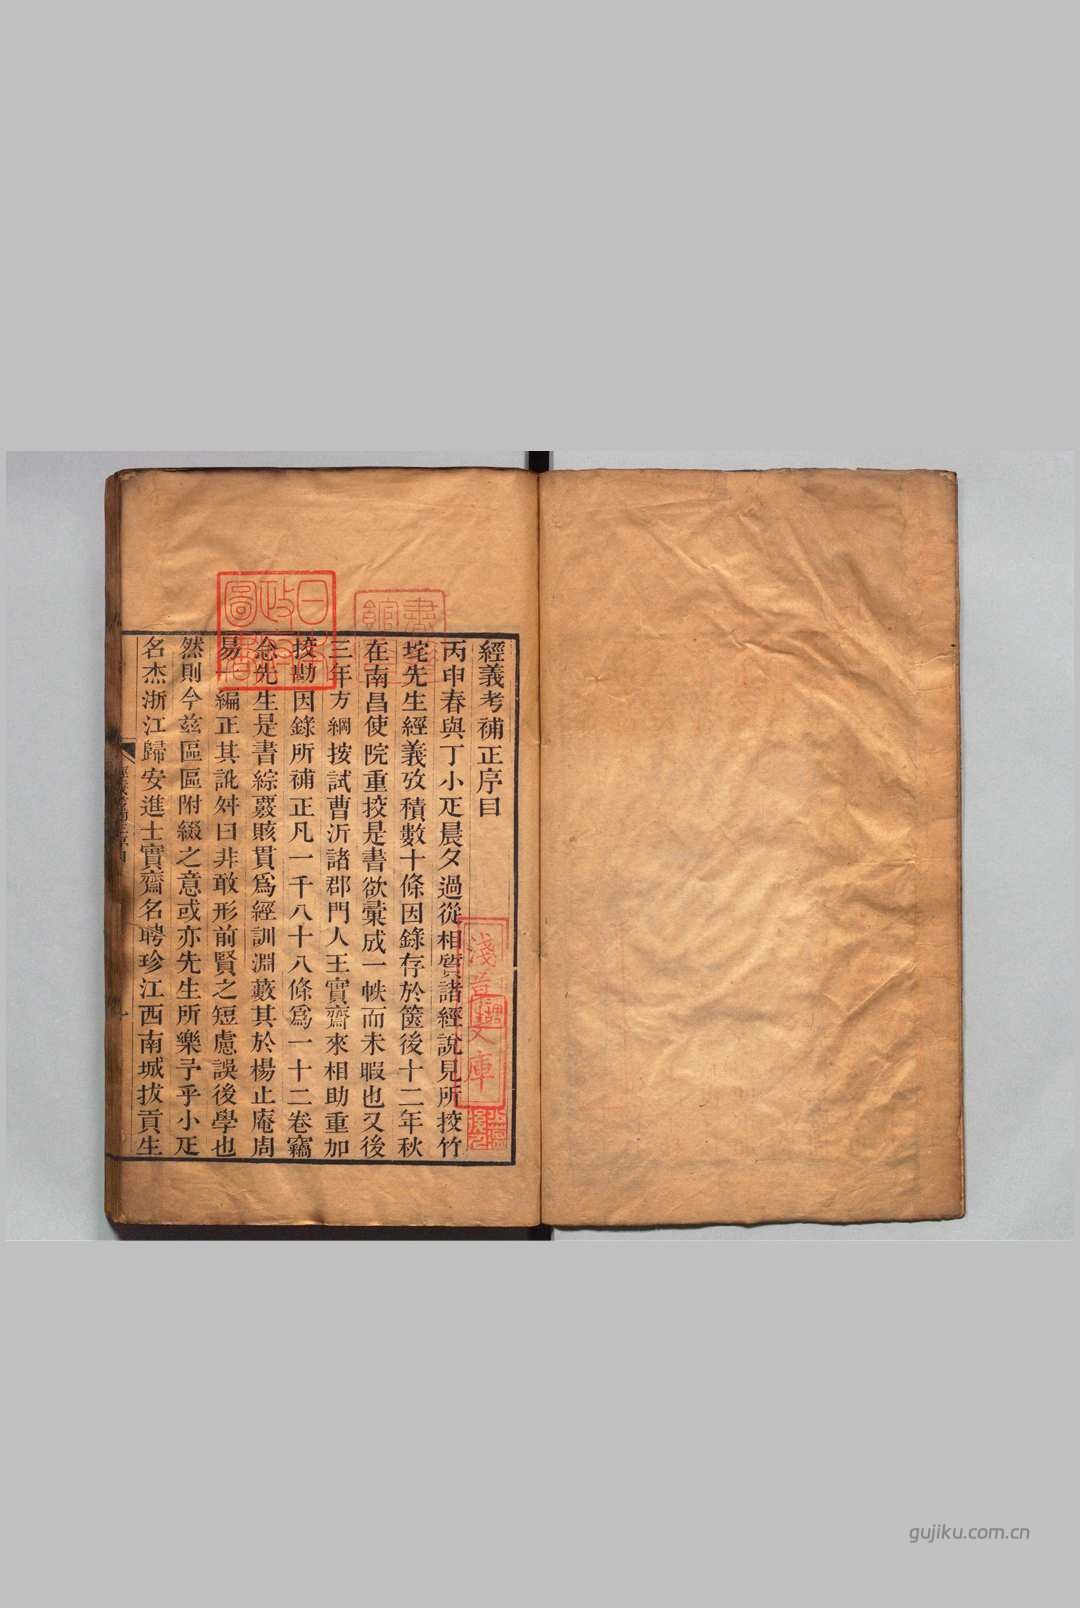 經義考補正序目
丙申春與丁小疋晨夕過從相質諸經說見所挍竹
垞先生經義攷積數十條因錄存於篋後十二年秋
在南昌使院重挍是書欲彙成一帙而未暇也又後
三年方綱按試曹沂諸郡門人王實齋來相助重加
挍勘因錄所補正凡一千八十八條爲一十二卷竊
念先生是書綜覈賅貫爲經訓淵藪其於楊止庵周
易一編正其訛舛曰非敢形前賢之短慮誤後學也
然則今茲區區附綴之意或亦先生所樂予乎小疋
名杰浙江歸安進士實齋名聘珍江西南城拔貢生
經義考補正序目
一
日本政府圖書
淺草文庫
gujiku.com.cn